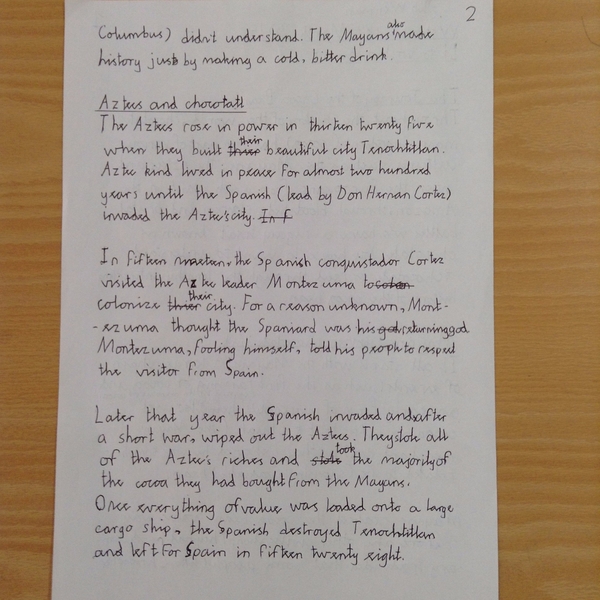 2
Columbus) didn't understand. The Mayans also made
history just by making a cold, bitter drink.
Aztecs and chocotatl
The Aztecs rose in power in thirteen twenty five
when they built thier their beautiful city Tenochtitlan.
Aztec kind lived in peace for almost two hundred
years until the Spanish (lead by Don Hernan Cortez)
invaded the Aztec's city. In f
In fifteen nineteen, the Spanish conquistador Cortez
visited the Aztec leader Montezuma to
colonize thier their city. For a reason unknown, Mont-
-ezuma thought the Spaniard was his god returning god.
Montezuma, fooling himself, told his people to respect
the visitor from Spain.
Later that year the Spanish invaded and after
a short war, wiped out the Aztecs. They stole all
of the Aztec's riches and stole took the majority of
the cocoa they had bought from the Mayans.
Once everything of value was loaded onto a large
cargo ship, the Spanish destroyed Tenochtitlan
and left for Spain in fifteen twenty eight.